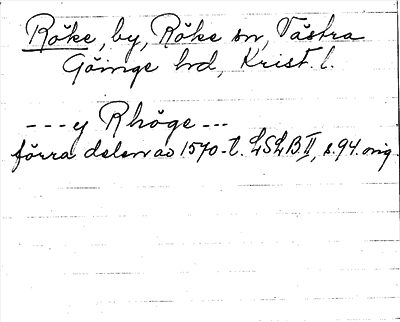 Röke, by, Röke sn, Västra
Göinge hd, Krist. l.
--- y Rhöge ---
förra delen av 1570-t. LSLB II, s. 94. orig.